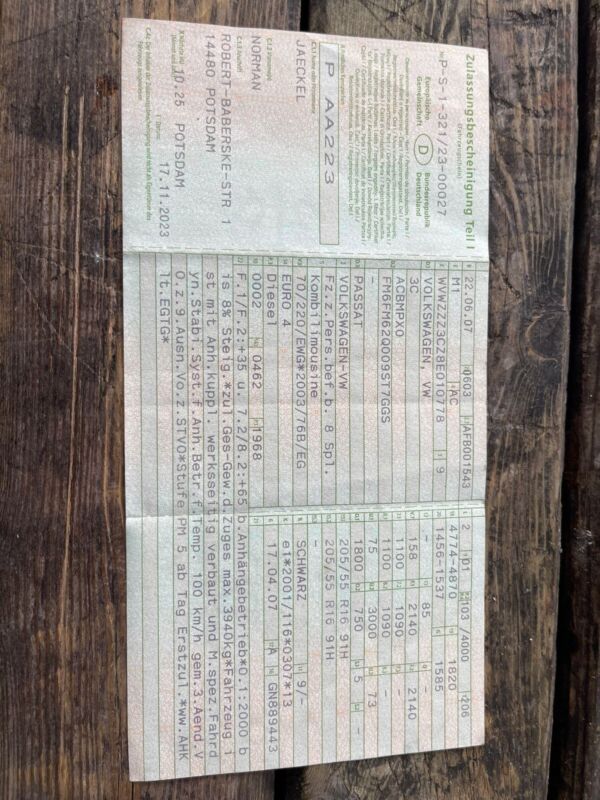 Zulassungsbescheinigung Teil I
(Fahrzeugschein)
Nr. P-S-1-321/23-00027
Europäische Gemeinschaft
D
Bundesrepublik Deutschland
P AA223
JAECKEL
NORMAN
ROBERT-BABERSKE-STR. 1
14480 POTSDAM
10.25 POTSDAM
17.11.2023
22.06.07 0603 AFB001543
M1 AC
WVWZZZ3CZ8E010778 9
VOLKSWAGEN, VW
3C
ACBMPX0
FM6FM62Q009ST7GGS
-
PASSAT
VOLKSWAGEN-VW
Fz.z.Pers.bef.b. 8 Spl.
Kombilimousine
70/220/EWG*2003/76B/EG
EURO 4
Diesel
0002 0462 1968
2 01 103 /4000 206
4774-4870 1820
1456-1537 1585
- 85 -
158 2140 2140
1100 1090 -
1100 1090 -
75 3000 73
1800 750 5 -
205/55 R16 91H
205/55 R16 91H
-
SCHWARZ 9/-
e1*2001/116*0307*13
17.04.07 A GN889443
F.1/F.2:+35 u. 7.2/8.2:+65 b.Anhängebetrieb*0.1:2000 b
is 8% Steig.*zul.Ges-Gew.d.Zuges max.3940kg*Fahrzeug i
st mit Anh.kuppl werksseitig verbaut und M.spez.Fahrd
yn.Stabi.Syst.f.Anh.Betr.f.Temp. 100 km/h gem.3.Aend.V
O.z.9.Ausn.Vo.z.STVO*Stufe PM 5 ab Tag Erstzul.*ww.AHK
lt.EGTG*